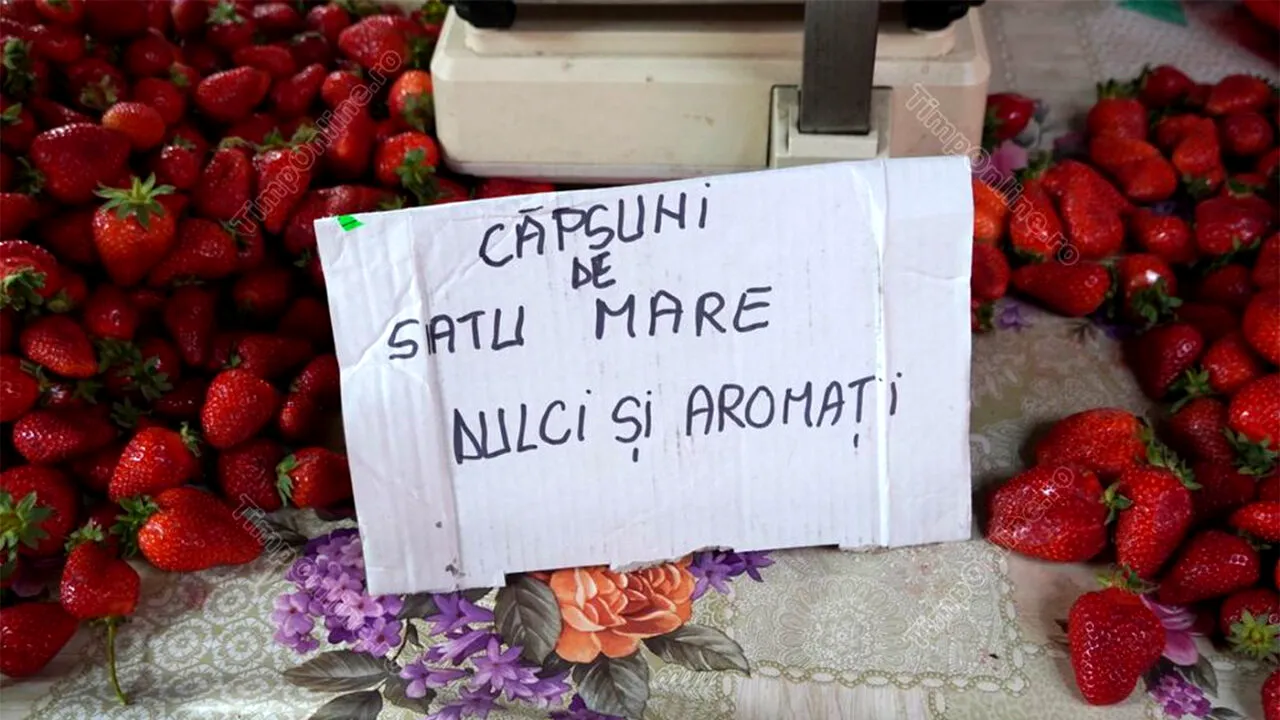 CĂPȘUNI
DE
SATU MARE
DULCI ȘI AROMAȚI
TimpOnline.ro
TimpOnline.ro
TimpOnline.ro
TimpOnline.ro
TimpOnline.ro
TimpOnline.ro